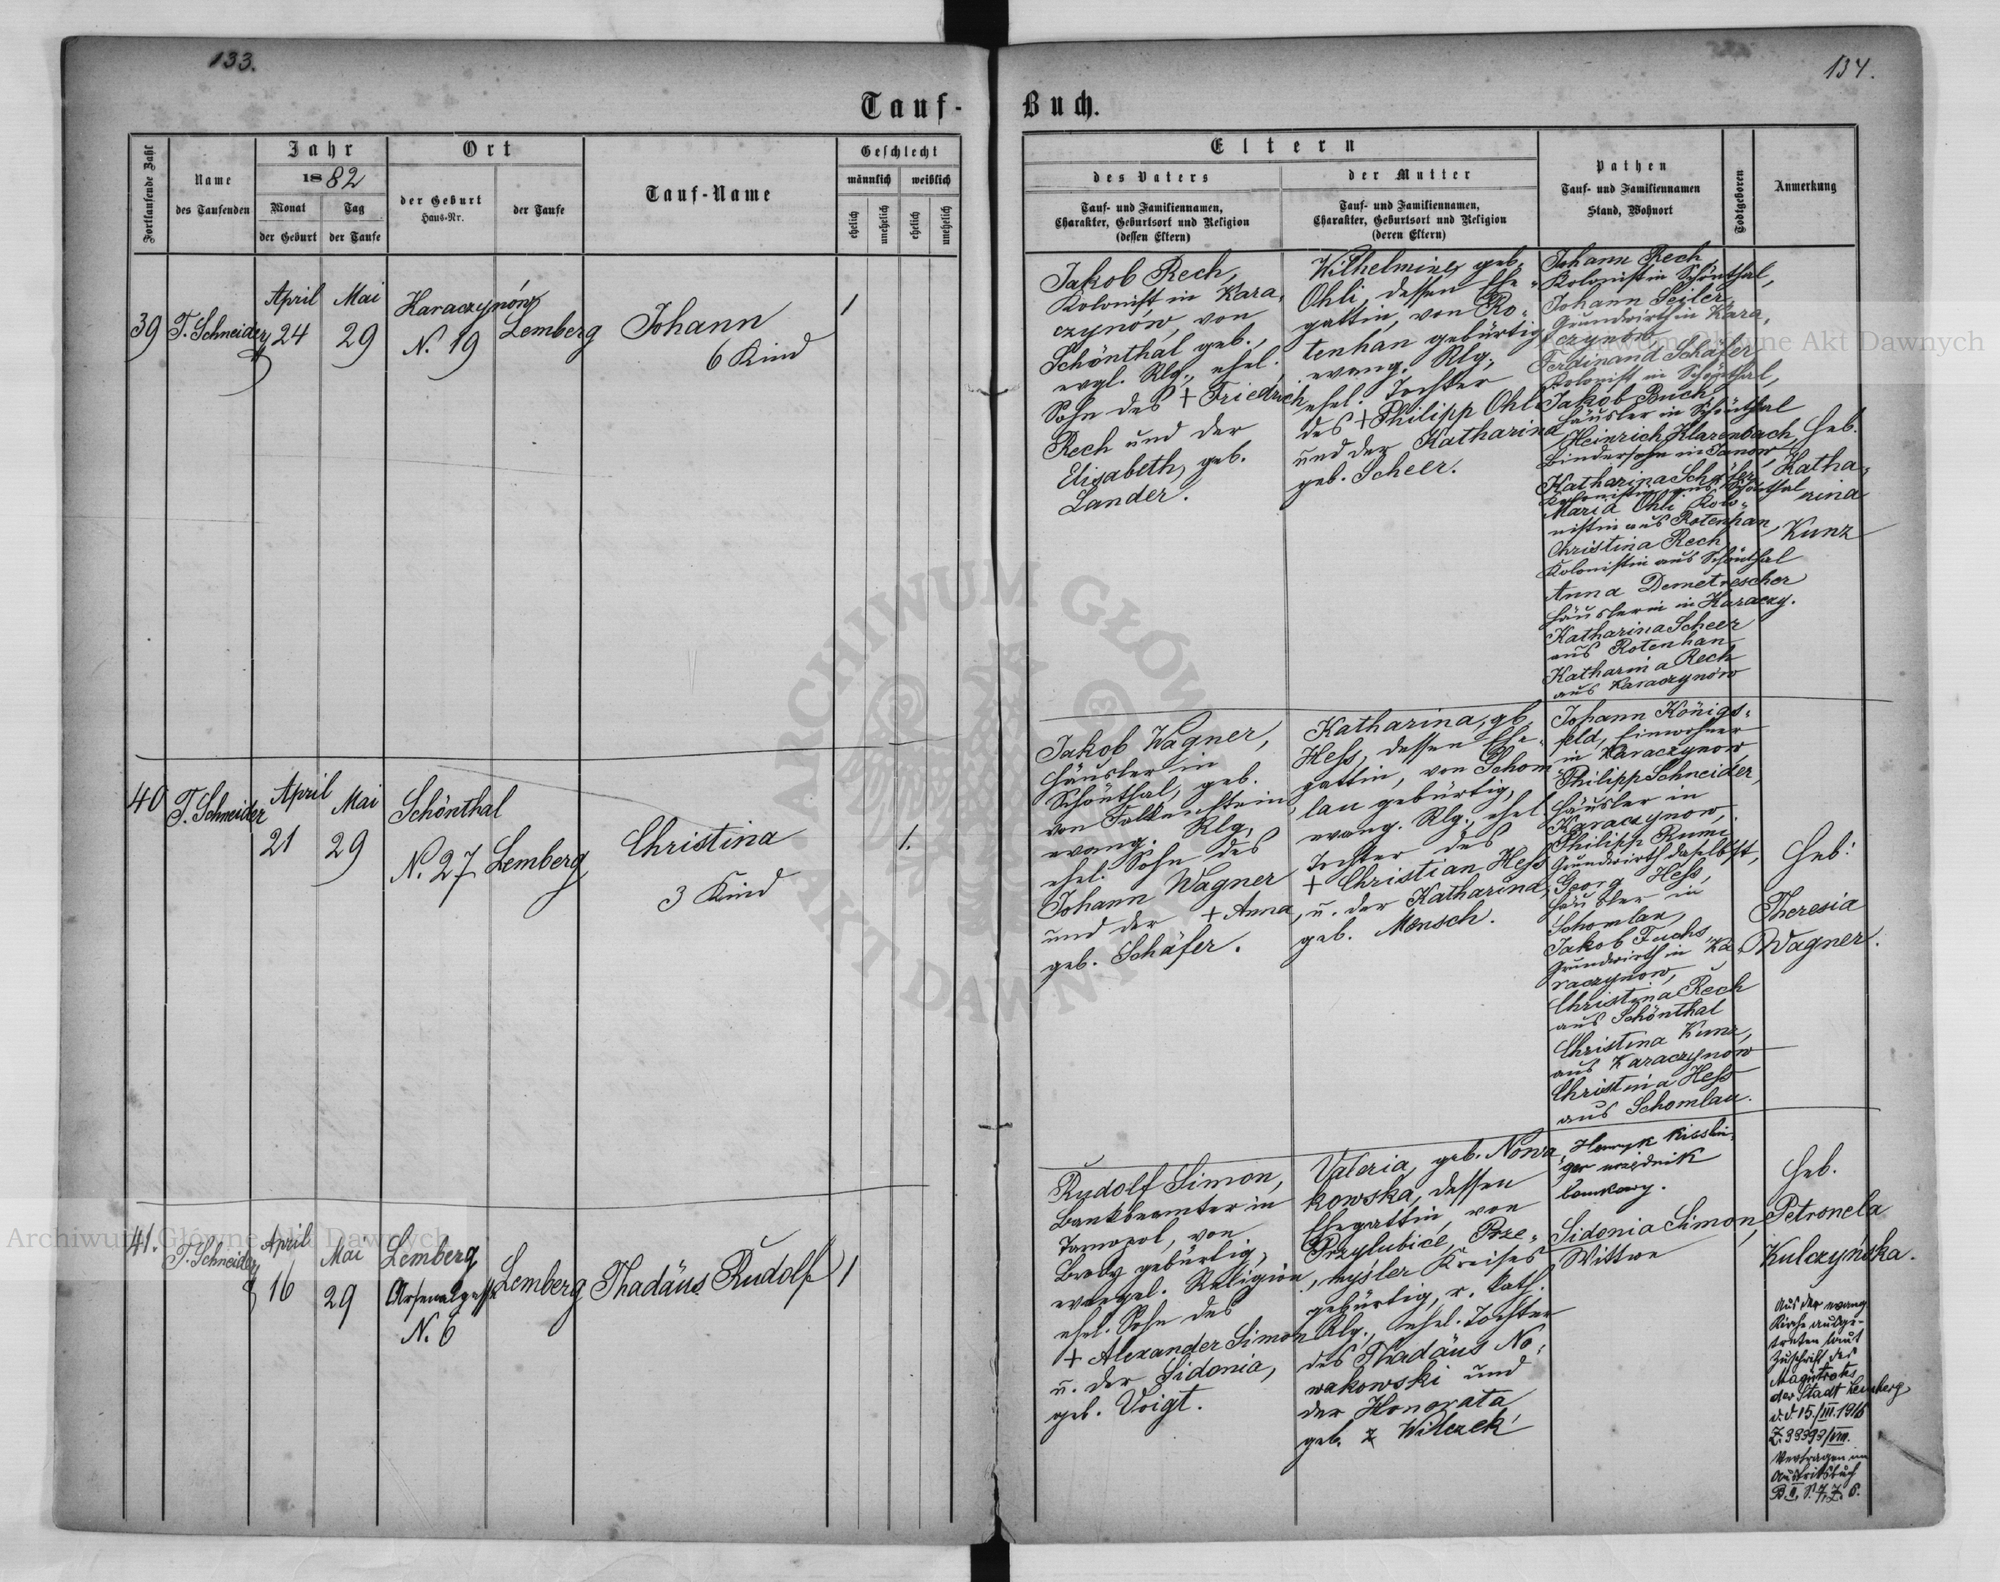 133.
134.
Tauf-
Buch.
Fortlaufende Zahl
Name
des Taufenden
Jahr
1882
Monat
der Geburt
Tag
der Taufe
Ort
der Geburt
Haus-Nr.
der Taufe
Tauf-Name
Geschlecht
männlich
weiblich
ehelich
unehelich
ehelich
unehelich
Eltern
des Vaters
Tauf- und Familiennamen,
Charakter, Geburtsort und Religion
(dessen Eltern)
der Mutter
Tauf- und Familiennamen,
Charakter, Geburtsort und Religion
(deren Eltern)
Pathen
Tauf- und Familiennamen
Stand, Wohnort
Todtgeboren
Anmerkung
39
T. Schneider
April
24
Mai
29
Karaczynów
N. 19
Lemberg
Johann
6 Kind
1
Jakob Rech,
Kolonist in Kara,
czynów, von
Schönthal geb.,
evgl. Rlg., ehel.
Sohn des + Friedrich
Rech und der
Elisabeth, geb.
Lander.
Wilhelmine, geb.
Ohli, dessen Ehe-
gattin, von Ro-
tenhan gebürtig
evang. Rlg.,
ehel. Tochter
des + Philipp Ohli
und der Katharina
geb. Scheer.
Johann Rech,
Kolonist in Schönthal,
Johann Seiler,
Grundwirth in Kara,
czynów,
Ferdinand Schäfer
Kolonist in Schönthal,
Jakob Buch,
Häusler in Schönthal
Heinrich Klarenbach,
Bindersohn in Janow
Katharina Schäfer
Kolonistin aus Schönthal
Maria Ohli Kolo-
nistin aus Rotenhan,
Christina Rech
Kolonistin aus Schönthal
Anna Demetrescher
Häuslerin in Karaczy.
Katharina Scheer
aus Rotenhan
Katharina Rech
aus Karaczynów
Heb.
Katha-
rina
Kunz
40
T. Schneider
April
21
Mai
29
Schönthal
N. 27
Lemberg
Christina
3 Kind
1.
Jakob Wagner,
Häusler in
Schönthal, geb.
von Falkenstein,
evang. Rlg,
ehel. Sohn des
Johann Wagner
und der + Anna,
geb. Schäfer.
Katharina, gb.
Heß, dessen Ehe-
gattin, von Schom
lau gebürtig,
evang. Rlg., ehel
Tochter des
+ Christian Heß
u. der Katharina,
geb. Mensch.
Johann Königs-
feld, Einwohner
in Karaczynow
Philipp Schneider,
Häusler in
Karaczynow,
Philipp Rumi
Grundwirth daselbst,
Georg Heß,
Häusler in
Schomlau,
Jakob Fuchs
Grundwirth in Ka
raczynow,
Christina Rech
aus Schönthal
Christina Kunz,
aus Karaczynow
Christina Heß
aus Schomlau.
Heb:
Theresia
Wagner.
41.
T. Schneider
April
16
Mai
29
Lemberg
Arsenalgasse
N. 6
Lemberg
Thadäus Rudolf
1
Rudolf Simon,
Bankbeamter in
Tarnopol, von
Brody gebürtig,
evangel. Religion,
ehel. Sohn des
+ Alexander Simon
u. der Sidonia,
geb. Voigt.
Valeria, geb. Nowa
kowska, dessen
Ehegattin, von
Przylubice, Prze-
mysler Kreises
gebürtig, r. kath.
Rlg., ehel. Tochter
des Thadäus No,
wakowski und
der Honorata
geb. Witczek
Henryk Kisslin
ger urzędnik
bankowy.
Sidonia Simon,
Wittwe
Heb.
Petronela
Kulczyńska.
Aus der evang
Kirche ausge-
treten laut
Zuschrift des
Magistrates
der Stadt Lemberg
d.d. 15./III. 1916
Z. 33393/VIII.
Vertragen im
Austrittsbuch
Archiwum Główne Akt Dawnych
Archiwum Główne Akt Dawnych
ARCHIWUM GŁÓWNE AKT DAWNYCH